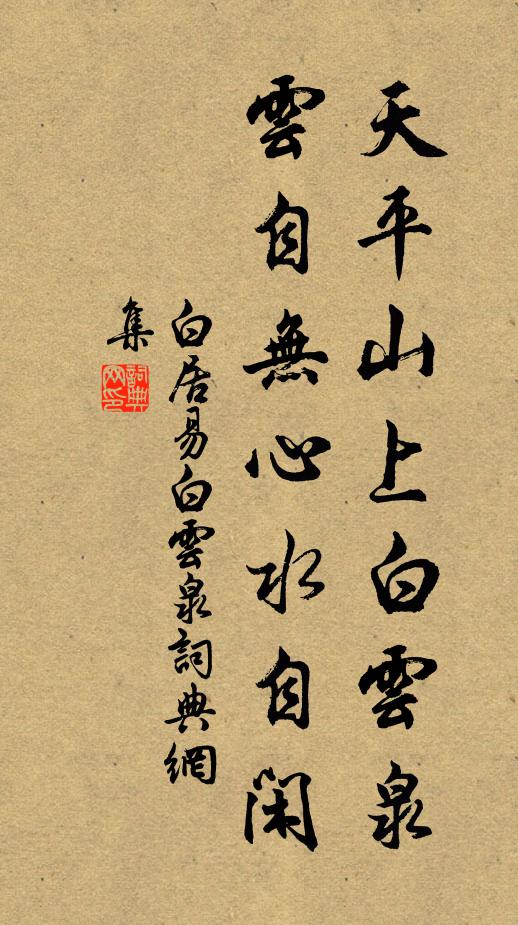 天平山上白雲泉
雲自無心水自閑
白居易白雲泉詞典網
集
詞典
网印